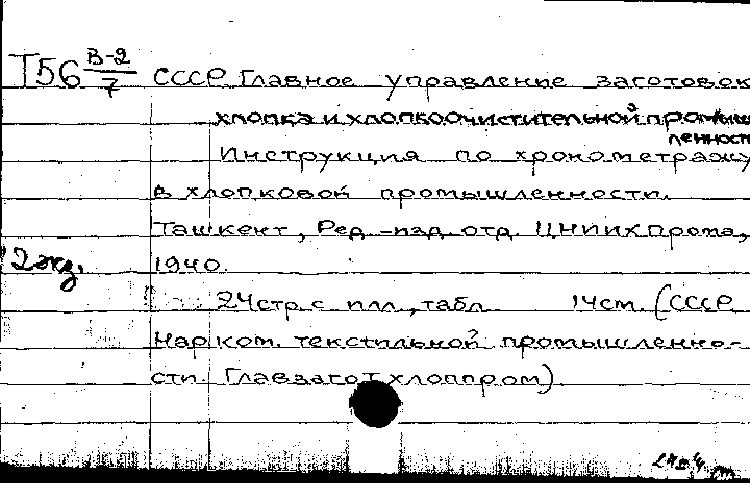 Т56 В-2/7 СССР. Главное управление заготовок
хлопка и хлопкоочистительной промыш
ленности
Инструкция по хронометражу
в хлопковой промышленности.
Ташкент, Ред.-изд. отд. ЦНИИХпрома,
2 экз. 1940.
24 стр. с илл., табл. 14 см. (СССР
Нарком. текстильной промышленно-
сти. Главзаготхлоппром).